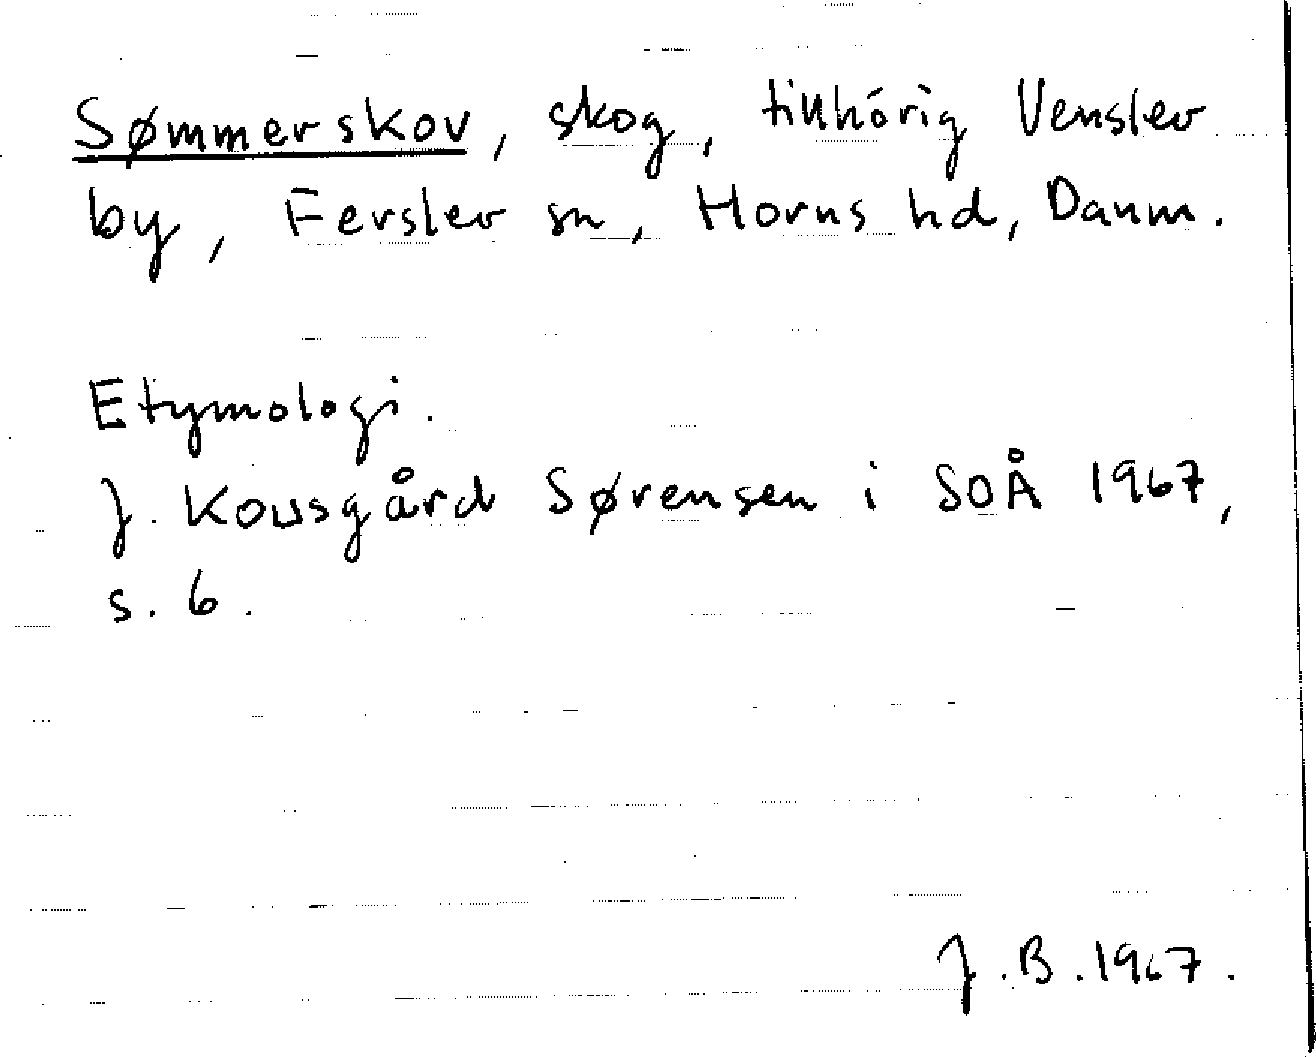 Sømmerskov, skog, tillhörig Venslev
by, Ferslev sn, Horns hd, Danm.
Etymologi.
J. Kousgård Sørensen i SOÅ 1967,
s. 6.
J.B. 1967.